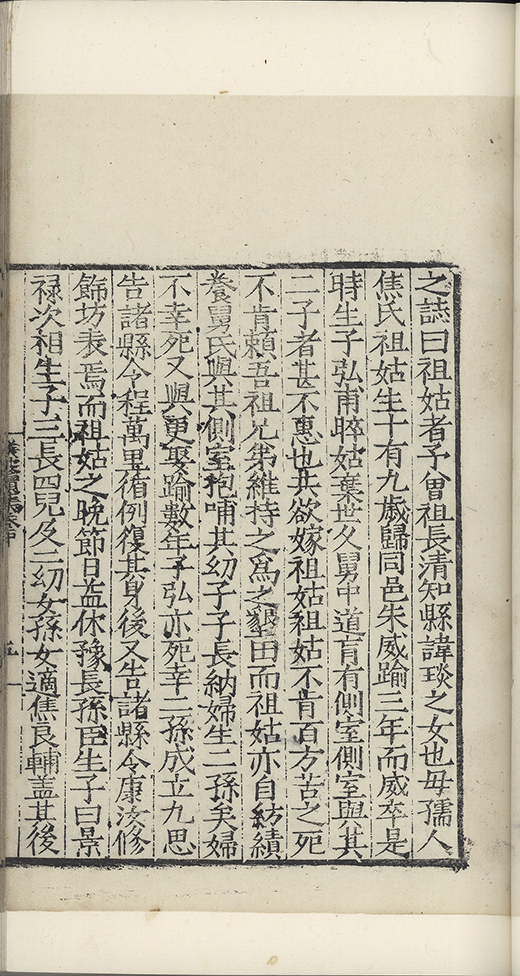 之誌曰祖姑者予曾祖長清知縣諱琰之女也母孺人
焦氏祖姑生十有九歲歸同邑朱威踰三年而威卒是
時生子弘甫晬姑棄世久舅中道盲有側室側室與其
二子者甚不惠也共欲嫁祖姑祖姑不肯百方苦之死
不肯頼吾祖兄弟維持之為之墾田而祖姑亦自紡績
養舅氏與其側室抱哺其幼子子長納婦生二孫矣婦
不幸死又與更娶踰數年子弘亦死幸二孫成立九思
告諸縣令程萬里循例復其身後又告諸縣令康汝修
飾坊表焉而祖姑之晚節日益休豫長孫臣生子曰景
禄次相生子三長四兒及二幼女孫女適焦良輔盖其後